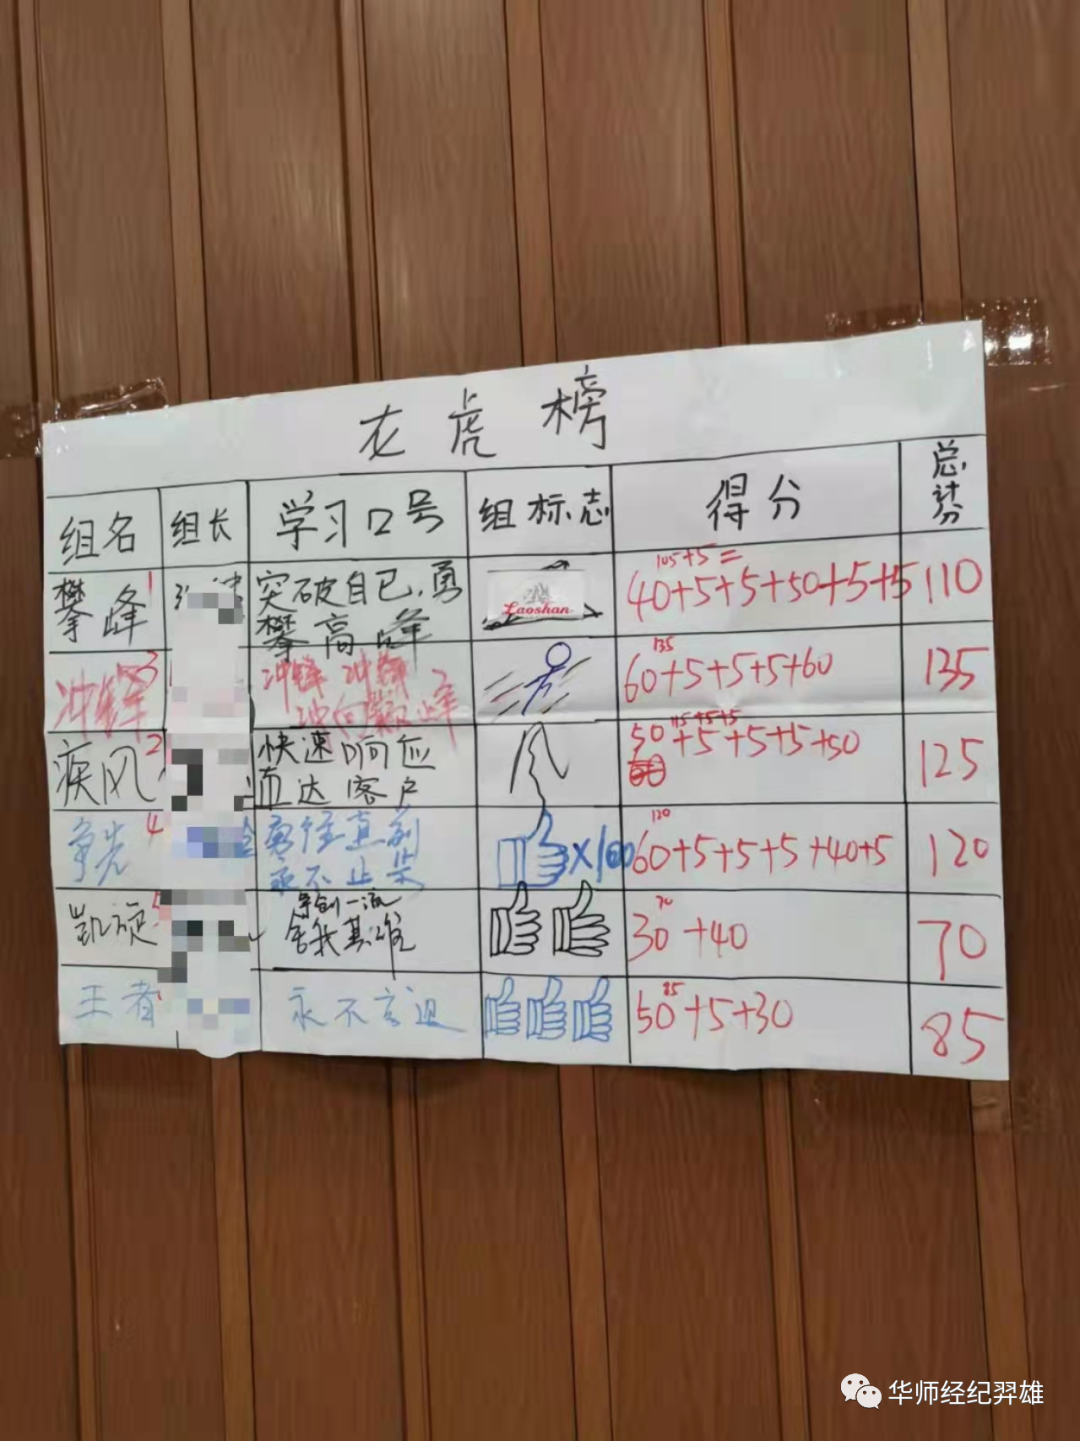 龙虎榜
组名 组长 学习口号 组标志 得分 总计分
攀峰 1 突破自己,勇攀高峰 Laoshan 105+5=
40+5+5+50+5+5 110
冲锋 3 冲锋 冲锋
冲向巅峰 135
60+5+5+5+60 135
疾风 2 快速响应
直达客户 115+5+5
50
60 +5+5+5+50 125
争先 4 勇往直前
永不止步 ×100 120
60+5+5+5+40+5 120
凯旋 5 争创一流
舍我其谁 70
30+40 70
王者 永不言退 85
50+5+30 85
华师经纪羿雄